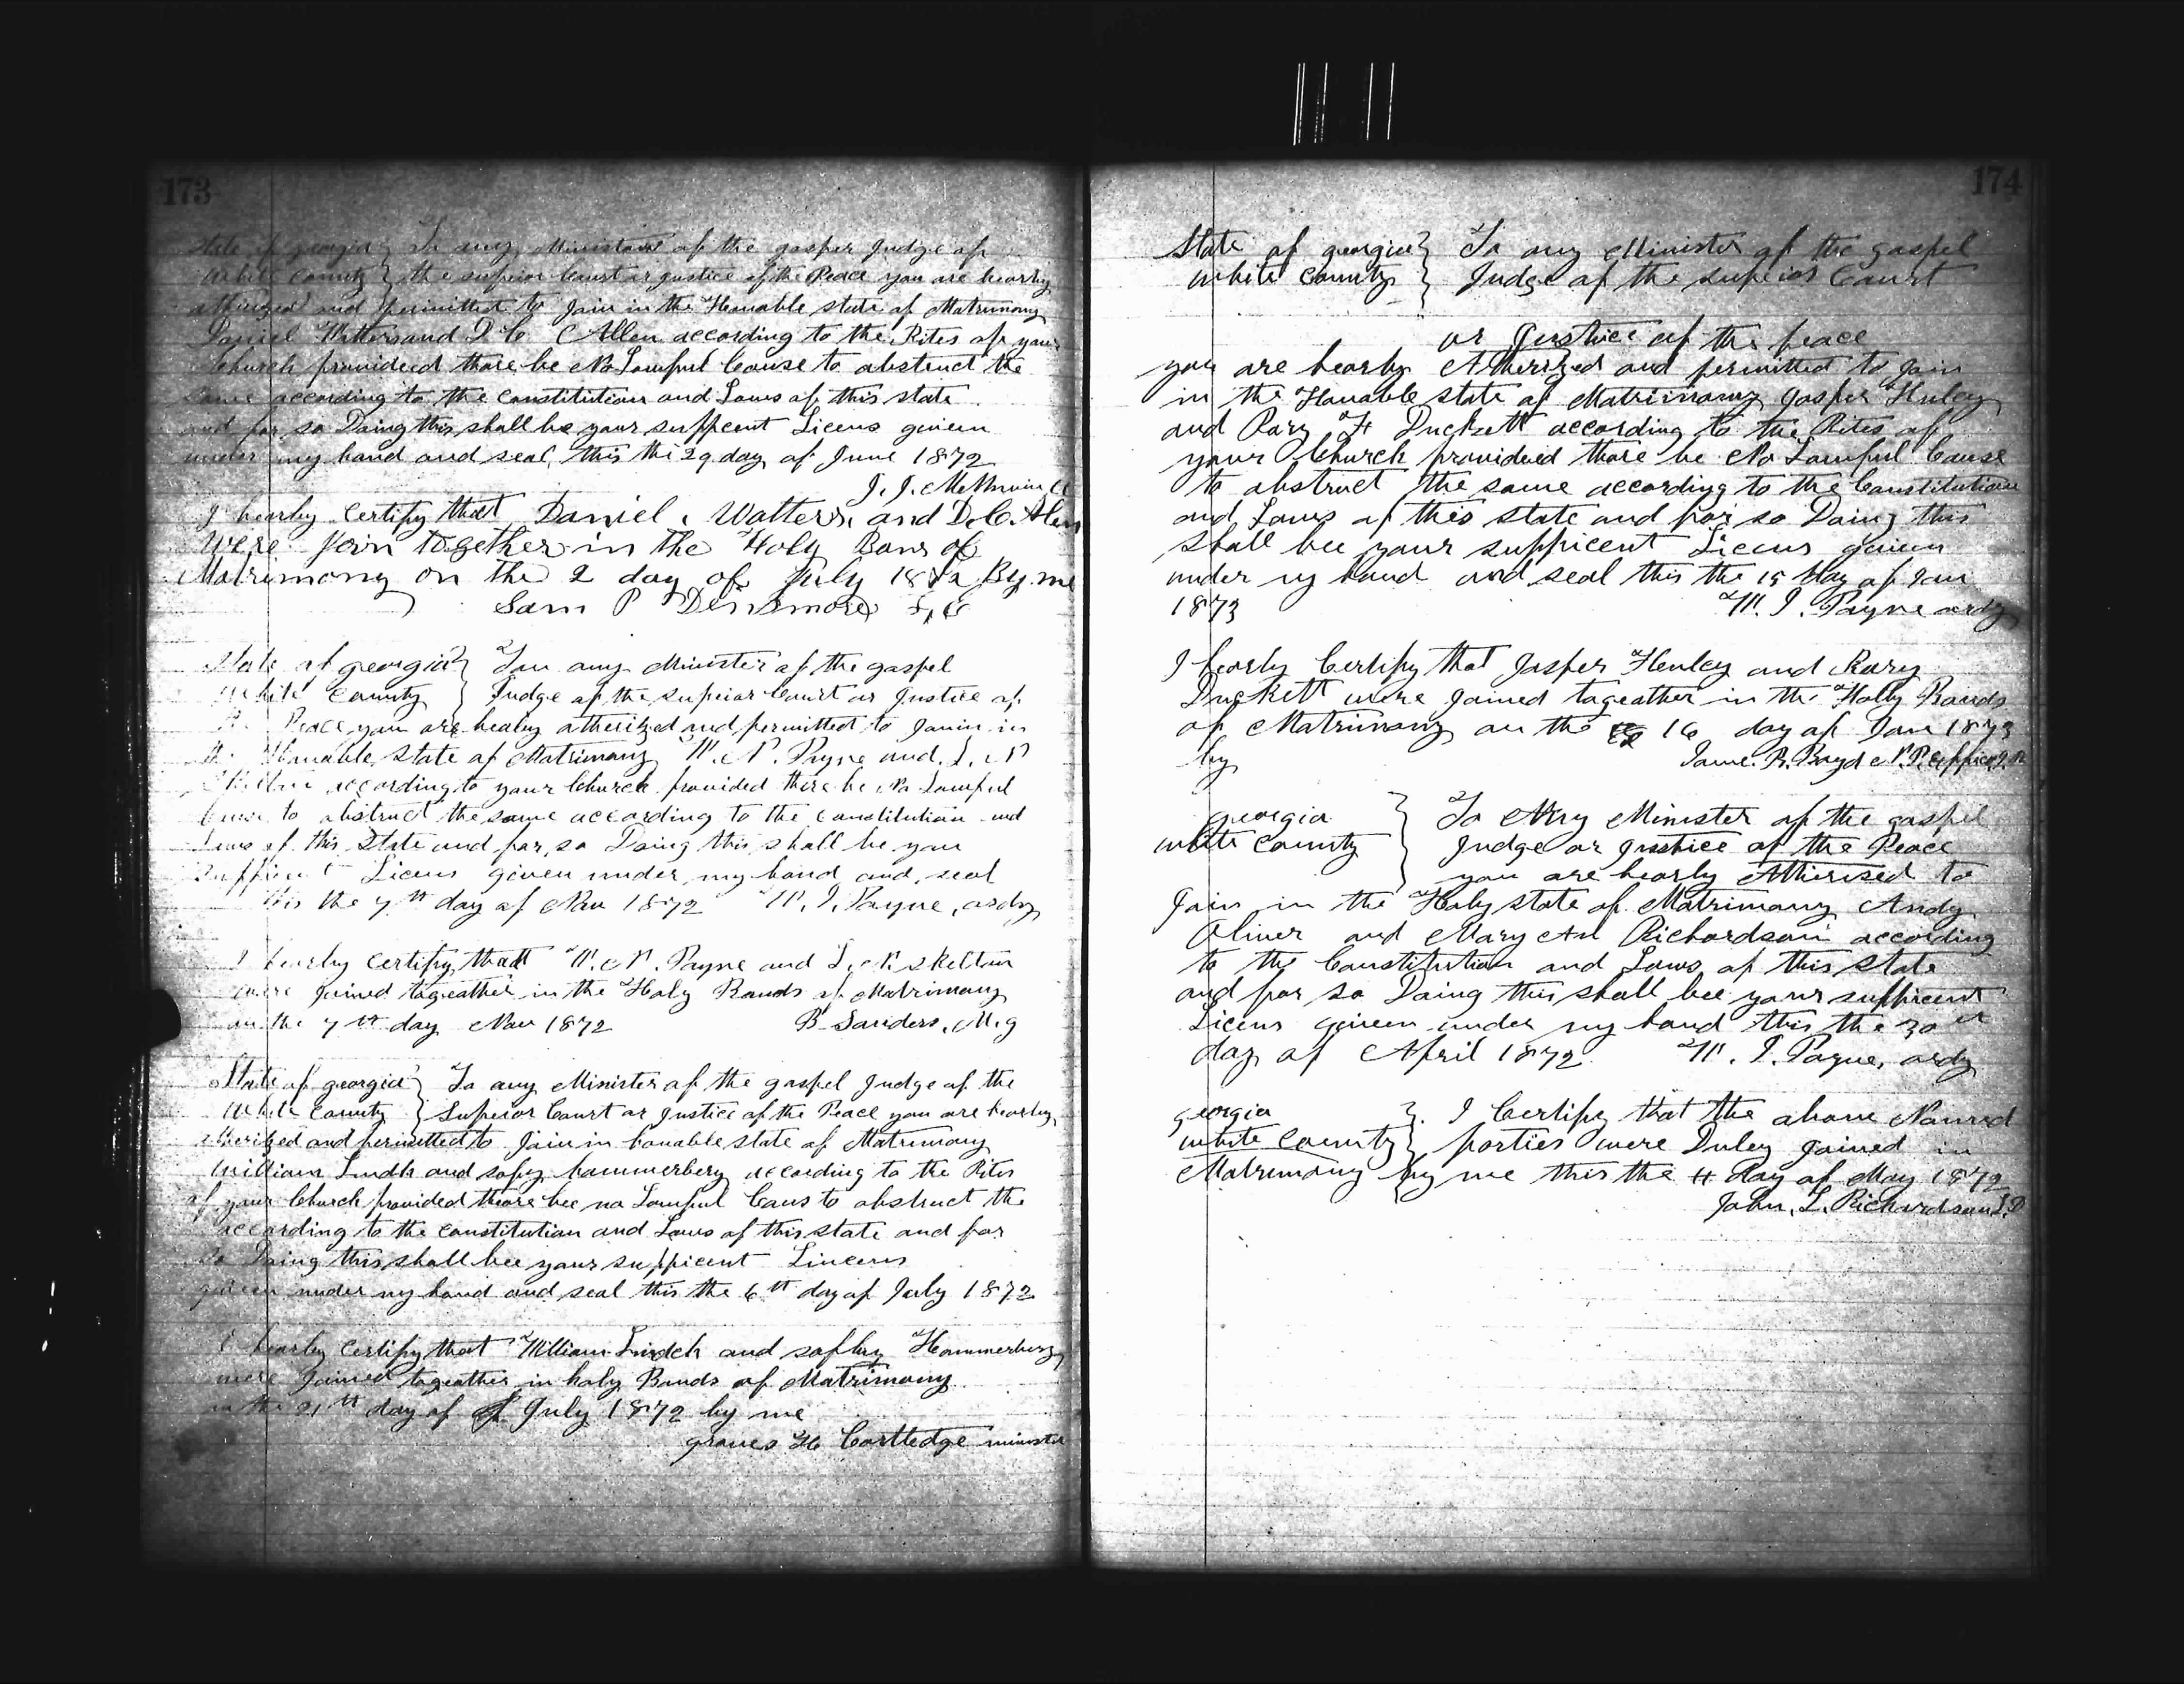 173
State of georgia } To any Minister of the gasper Judge of
White County } the supirer Court or Justice of the Peace you are hearby
atherized and permitted to Join in the Honuable state of Matrimony
Daniel Watters and D C Allen according to the Rites of your
Church provideed thare be No Lawful Cause to abstruct the
same according to the Constitution and Laws of this state
and for so Doing this shall be your sufficent Licens givien
under my hand and seal this the 29 day of June 1872
J. J. Methvin
I hearby Certify that Daniel Watters and D. C. Alen
were Join together in the Holy Bons of
Matrimony on the 2 day of July 1872 By me
Sam P Densmore
State of georgia } Too any Minister of the gaspel
White County } Judge of the supeior Court or Justice of
the Peace you are heaby atherized and permitted to Jonin in
the Honuable State of Matrimony W. N. Payne and L. N
Skelton according to your Church provided there be No Lawful
Cause to abstruct the same according to the constitution and
Laws of this State and for so Doing this shall be you
Sufficint Licens given under my hand and seal
this the 7th day of Nov 1872 W. I. Payne, ordy
I hearby certify thatt W. N. Payne and L. N. Skelton
were Joined togeather in the Holy Bands of Matrimony
on the 7th day Nov 1872 B Sanders, M. g
State of georgia } To any Minister of the gospel Judge of the
White County } Superor Court or Justice of the Peace you are hearby
atherized and permitted to Join in honable state of Matrimony
William Lindh and sofhy hammerbery according to the Rites
of your Church provided thare bee no Lawful Caus to abstruct the
according to the constitution and Laws of this state and for
so Doing this shall bee your sufficent Lincens
givien under my hand and seal this the 6th day of July 1872
I hearby certify that William Lindh and sofhy Hammerberg
were Joined togeather in holy Bands of Matrimony
on the 21th day of July 1872 by me
groves H Cartledge minister
174
State of georgia } To any Minister of the gaspel
White County } Judge of the supeior Court
or Justice of the peace
you are hearby Atherized and permitted to Join
in the Honable state of Matriimony Jasper Henley
and Rary H Duckett according to the Rites of
your Church provideed thare be No Lawful Cause
to abstruct the same according to the Constitution
and Laws of this state and for so Doing this
shall bee your sufficent Licens givien
under my hand and seal this the 15 day of Jan
1873 W. I. Payne ordy
I hearby Certify that Jasper Henley and Rary
Duckett were Joined togeather in the Holly Bands
of Matrimony on the 16 day of Jan 1873
by Jame. R. Boyd N. P.
georgia } To Any Minister of the gaspel
white County } Judge or Justice of the Peace
you are hearly Atherised to
Join in the Holy state of Matrimony Andy
Oliver and Mary An Richardson according
to the Constitution and Laws of this State
and for so Doing this shall bee your sufficent
Licens givien under my hand this the 30 th
day of April 1872. W. I. Payne, ordy
georgia } I Certify that the above Named
white County } parties were Duley Joined in
Matrimony by me this the day of May 1872
John. L. Richardson J. P